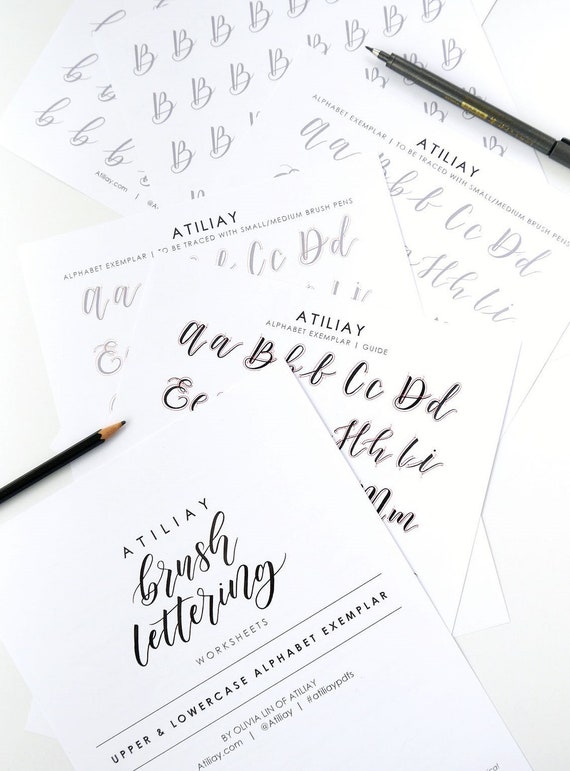 b B B B B B B B
b B B B B B B
b b B B B B
B B B
Atiliay.com | @At
ATILIAY
ALPHABET EXEMPLAR | TO BE TRACED WITH SMALL/MEDIUM BRUSH PENS
Aa Bb Cc Dd
Hh Ii
ATILIAY
ALPHABET EXEMPLAR | TO BE TRACED WITH SMALL/MEDIUM BRUSH PENS
Aa Cc Dd
E
ATILIAY
ALPHABET EXEMPLAR | GUIDE
Aa Bb Cc Dd
Ee Hh Ii
Mm
ATILIAY
brush
lettering
WORKSHEETS
UPPER & LOWERCASE ALPHABET EXEMPLAR
BY OLIVIA LIN OF ATILIAY
Atiliay.com | @Atiliay | #atiliaypdfs